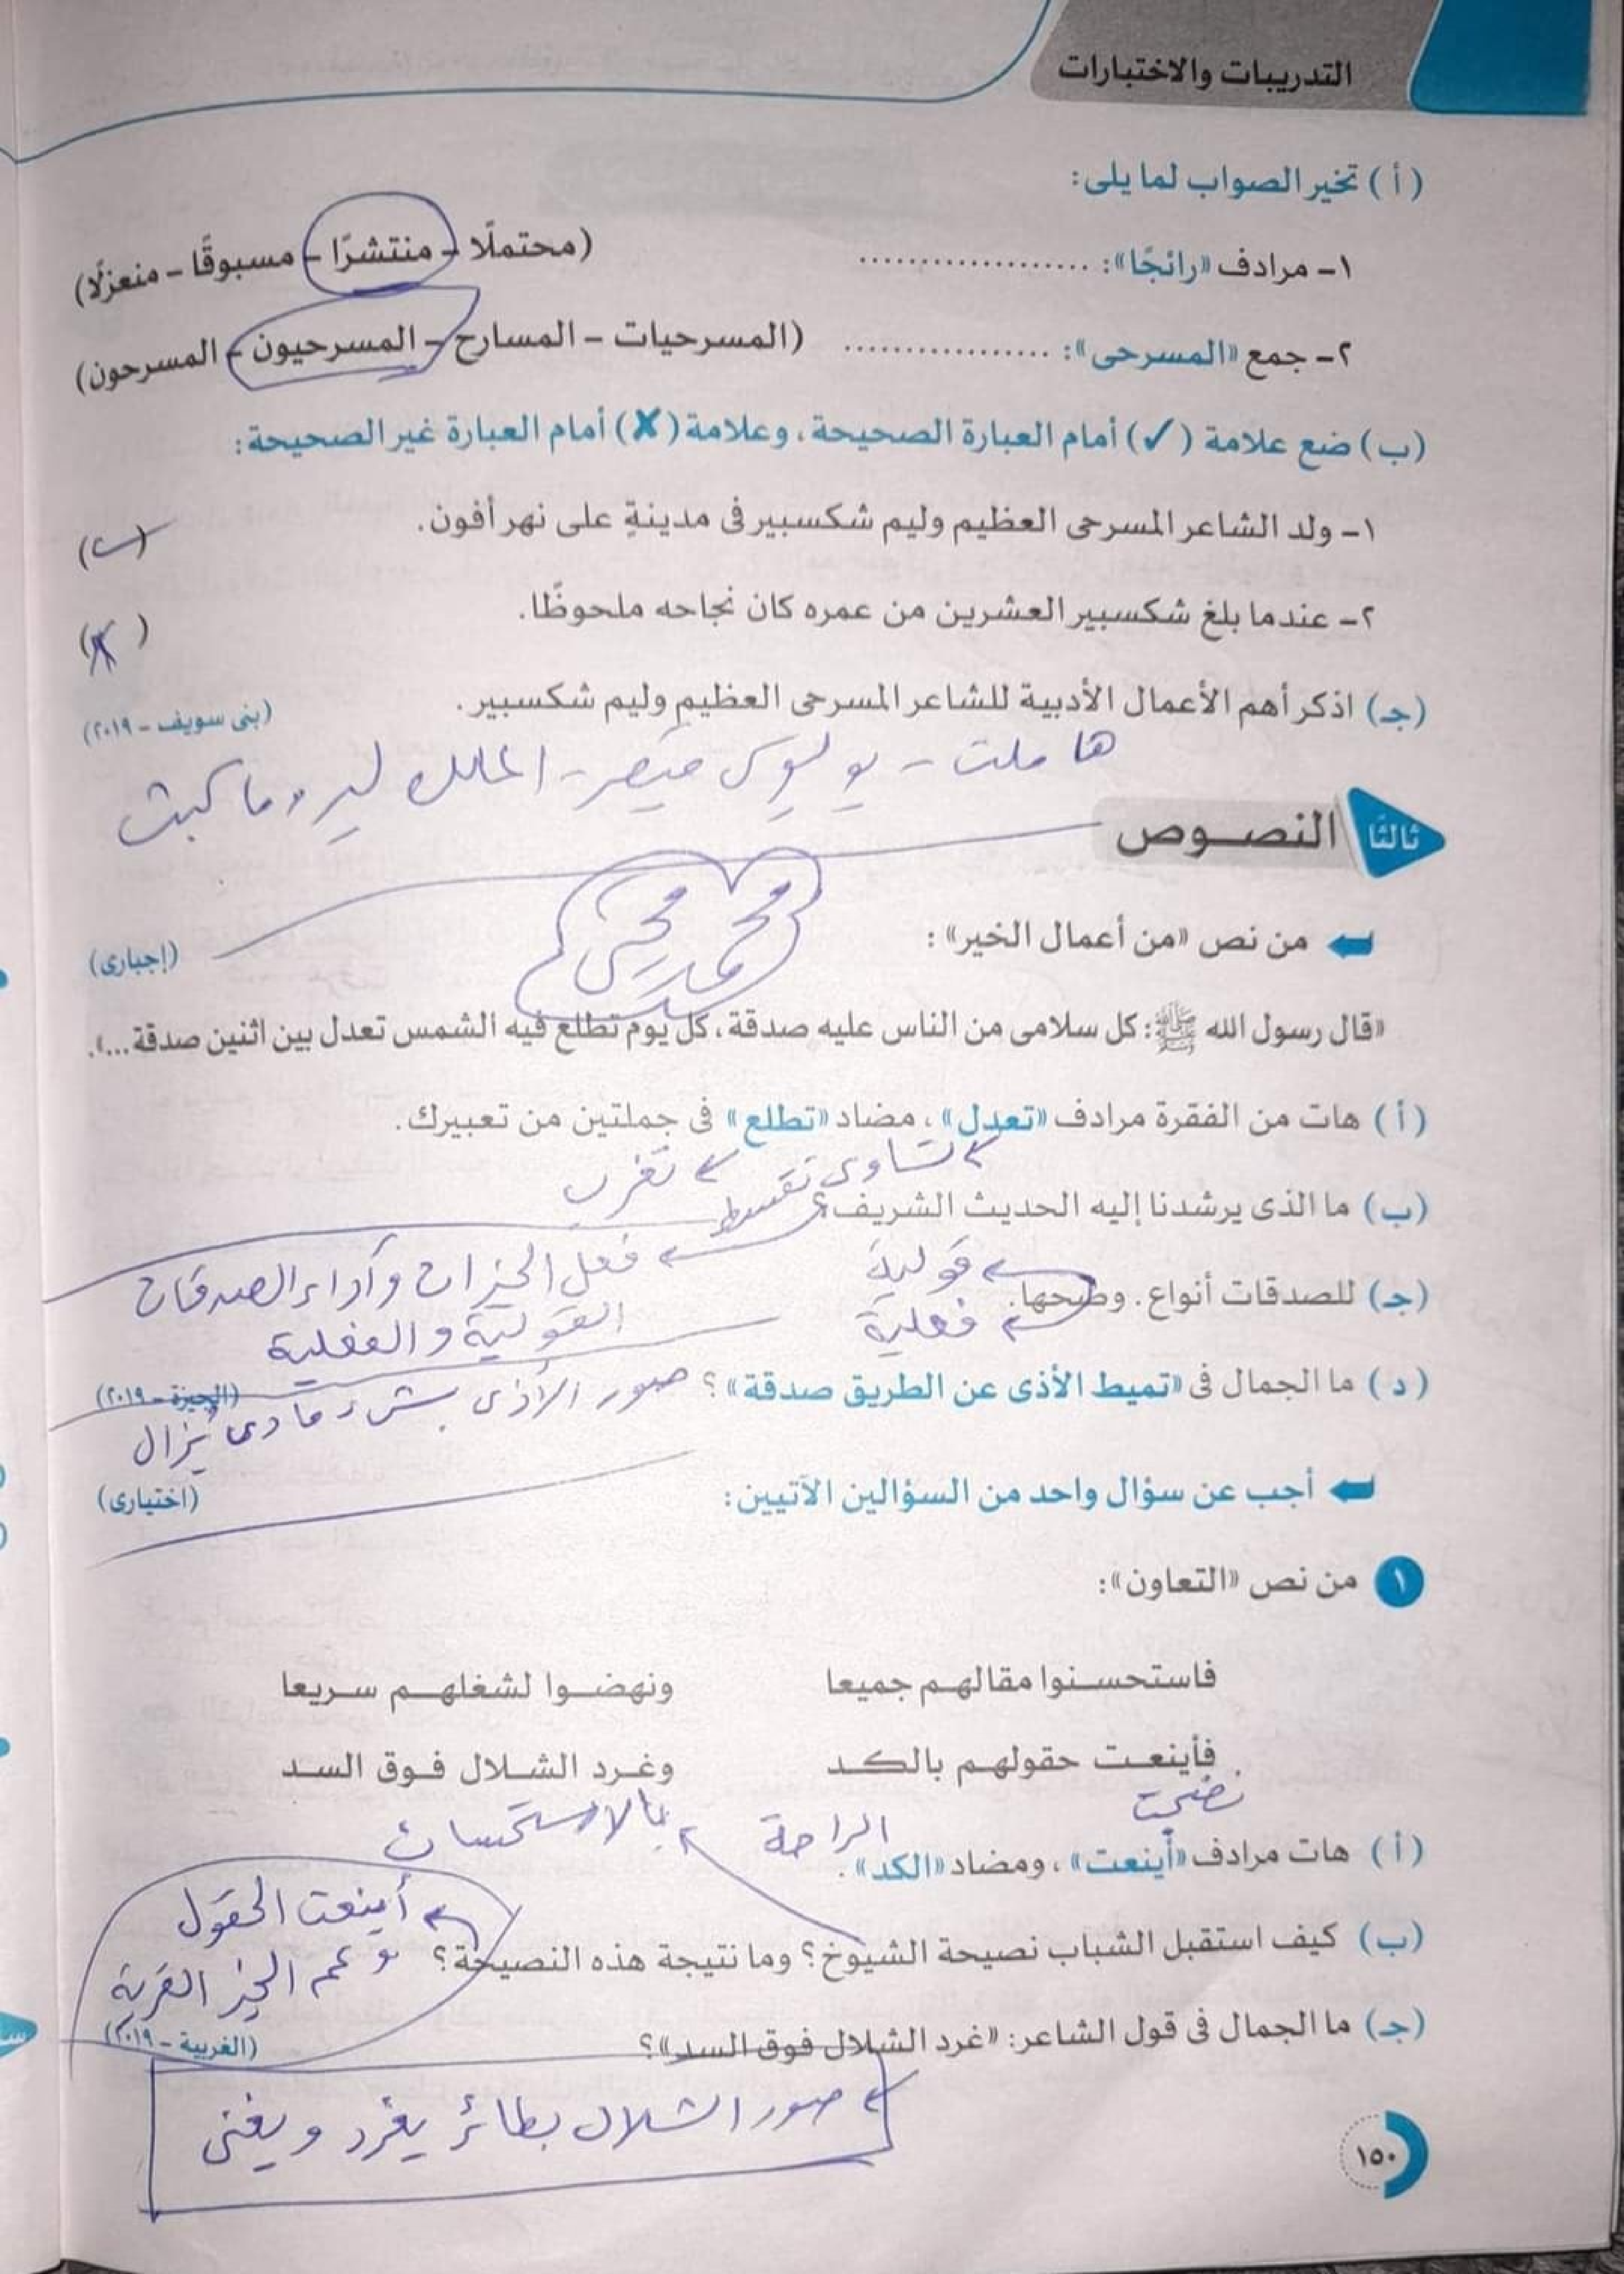 التدريبات والاختبارات
(أ) تخير الصواب لما يلى:
١- مرادف «رائجًا»: .................... (محتملًا - منتشرًا - مسبوقًا - منعزلًا)
٢- جمع «المسرحى»: .................. (المسرحيات - المسارح - المسرحيون - المسرحون)
(ب) ضع علامة (✓) أمام العبارة الصحيحة، وعلامة (✗) أمام العبارة غير الصحيحة:
١- ولد الشاعر المسرحى العظيم وليم شكسبير فى مدينةٍ على نهر أفون. (✓)
٢- عندما بلغ شكسبير العشرين من عمره كان نجاحه ملحوظًا. (✗)
(جـ) اذكر أهم الأعمال الأدبية للشاعر المسرحى العظيم وليم شكسبير. (بنى سويف - ٢٠١٩)
هاملت - يوليوس قيصر - الملك لير وماكبث
ثالثًا النصوص
محمد
من نص «من أعمال الخير»: (إجبارى)
«قال رسول الله ﷺ: كل سلامى من الناس عليه صدقة، كل يوم تطلع فيه الشمس تعدل بين اثنين صدقة...».
(أ) هات من الفقرة مرادف «تعدل»، مضاد «تطلع» فى جملتين من تعبيرك.
تساوى تقسط تغرب
(ب) ما الذى يرشدنا إليه الحديث الشريف؟
فعل الخيرات وأداء الصدقات
القولية والفعلية
(جـ) للصدقات أنواع. وضحها.
قولية
فعلية
(د) ما الجمال فى «تميط الأذى عن الطريق صدقة»؟ (الجيزة - ٢٠١٩)
صور الأذى بشىء مادى يُزال
أجب عن سؤال واحد من السؤالين الآتيين: (اختيارى)
١ من نص «التعاون»:
فاستحسنوا مقالهم جميعا ونهضوا لشغلهم سريعا
فأينعت حقولهم بالكد وغرد الشلال فوق السد
نضجت
الراحة
بالاستحسان
(أ) هات مرادف «أينعت»، ومضاد «الكد».
(ب) كيف استقبل الشباب نصيحة الشيوخ؟ وما نتيجة هذه النصيحة؟
أينعت الحقول
وعم الخير القرية
(جـ) ما الجمال فى قول الشاعر: «غرد الشلال فوق السد»؟ (الغربية - ٢٠١٩)
صور الشلال بطائر يغرد ويغنى
١٥٠